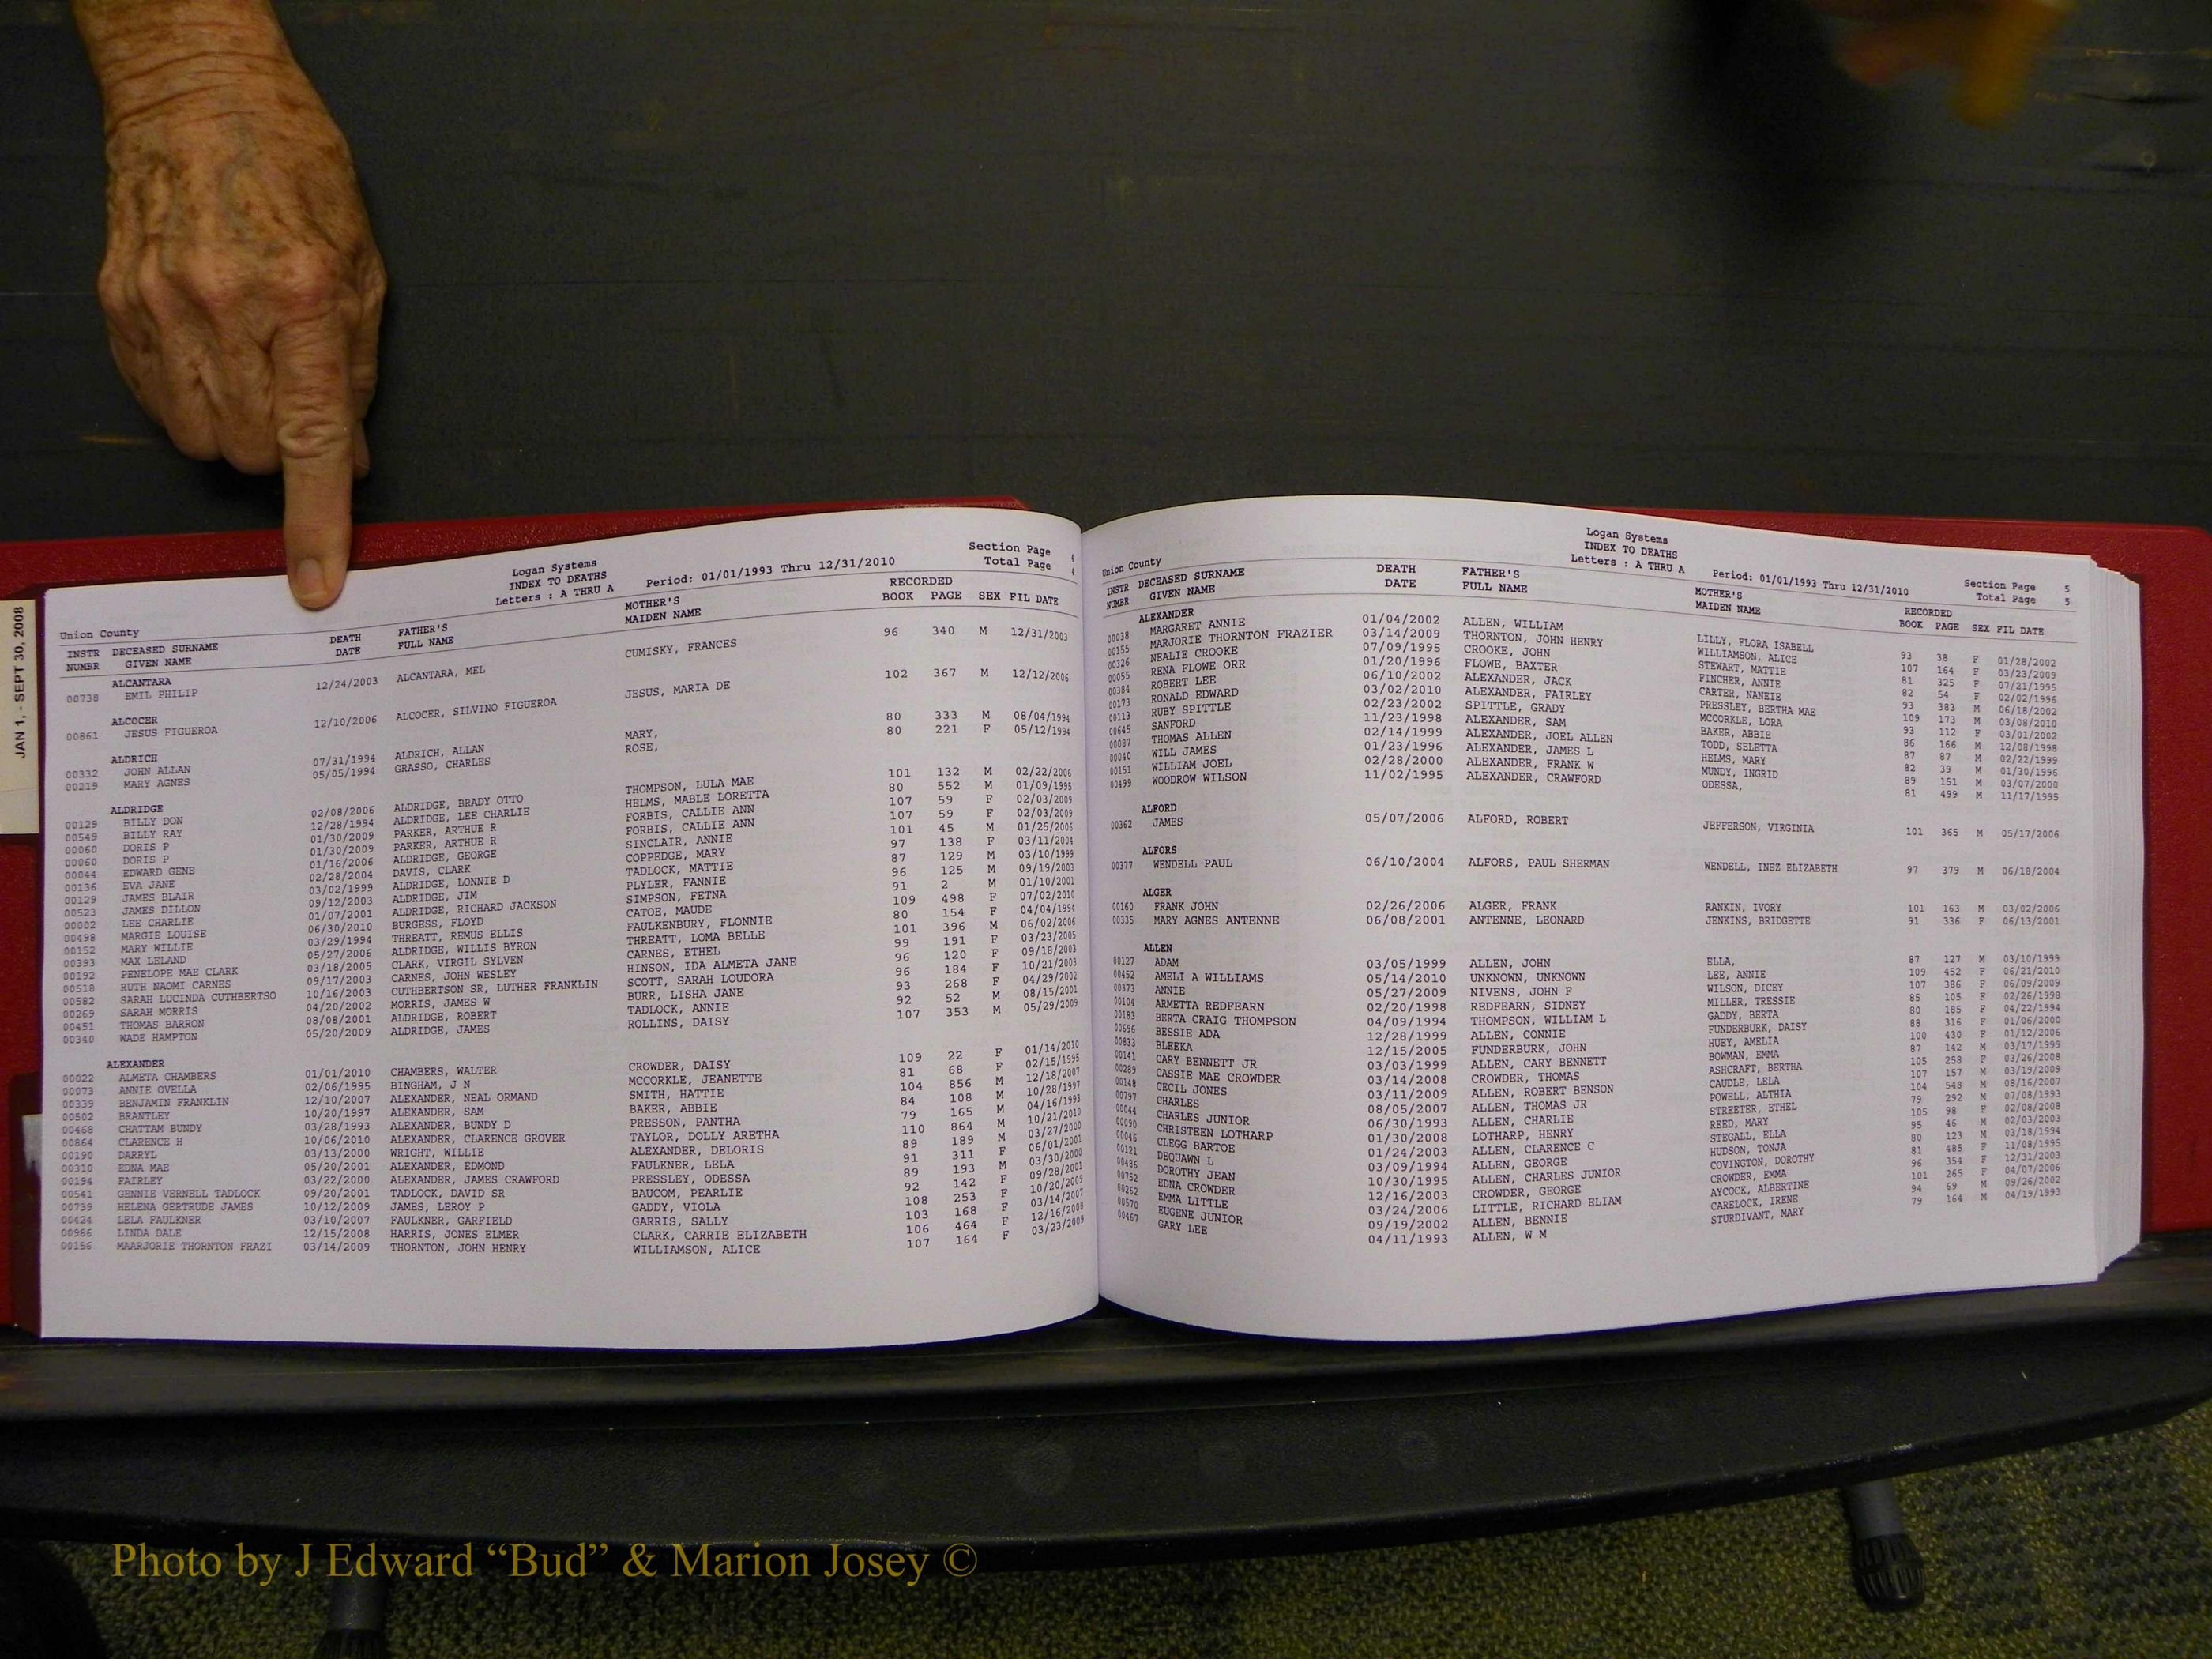 JAN 1, - SEPT 30, 2008
Logan Systems
INDEX TO DEATHS
Letters : A THRU A
Period: 01/01/1993 Thru 12/31/2010
Section Page 4
Total Page 4
Union County
INSTR DECEASED SURNAME DEATH FATHER'S MOTHER'S RECORDED
NUMBR GIVEN NAME DATE FULL NAME MAIDEN NAME BOOK PAGE SEX FIL DATE
ALCANTARA
00738 EMIL PHILIP 12/24/2003 ALCANTARA, MEL CUMISKY, FRANCES 96 340 M 12/31/2003
ALCOCER
00861 JESUS FIGUEROA 12/10/2006 ALCOCER, SILVINO FIGUEROA JESUS, MARIA DE 102 367 M 12/12/2006
ALDRICH
00332 JOHN ALLAN 07/31/1994 ALDRICH, ALLAN MARY, 80 333 M 08/04/1994
00219 MARY AGNES 05/05/1994 GRASSO, CHARLES ROSE, 80 221 F 05/12/1994
ALDRIDGE
00129 BILLY DON 02/08/2006 ALDRIDGE, BRADY OTTO THOMPSON, LULA MAE 101 132 M 02/22/2006
00549 BILLY RAY 12/28/1994 ALDRIDGE, LEE CHARLIE HELMS, MABLE LORETTA 80 552 M 01/09/1995
00060 DORIS P 01/30/2009 PARKER, ARTHUE R FORBIS, CALLIE ANN 107 59 F 02/03/2009
00060 DORIS P 01/30/2009 PARKER, ARTHUE R FORBIS, CALLIE ANN 107 59 F 02/03/2009
00044 EDWARD GENE 01/16/2006 ALDRIDGE, GEORGE SINCLAIR, ANNIE 101 45 M 01/25/2006
00136 EVA JANE 02/28/2004 DAVIS, CLARK COPPEDGE, MARY 97 138 F 03/11/2004
00129 JAMES BLAIR 03/02/1999 ALDRIDGE, LONNIE D TADLOCK, MATTIE 87 129 M 03/10/1999
00523 JAMES DILLON 09/12/2003 ALDRIDGE, JIM PLYLER, FANNIE 96 125 M 09/19/2003
00002 LEE CHARLIE 01/07/2001 ALDRIDGE, RICHARD JACKSON SIMPSON, FETNA 91 2 M 01/10/2001
00498 MARGIE LOUISE 06/30/2010 BURGESS, FLOYD CATOE, MAUDE 109 498 F 07/02/2010
00152 MARY WILLIE 03/29/1994 THREATT, REMUS ELLIS FAULKENBURY, FLONNIE 80 154 F 04/04/1994
00393 MAX LELAND 05/27/2006 ALDRIDGE, WILLIS BYRON THREATT, LOMA BELLE 101 396 M 06/02/2006
00192 PENELOPE MAE CLARK 03/18/2005 CLARK, VIRGIL SYLVEN CARNES, ETHEL 99 191 F 03/23/2005
00518 RUTH NAOMI CARNES 09/17/2003 CARNES, JOHN WESLEY HINSON, IDA ALMETA JANE 96 120 F 09/18/2003
00582 SARAH LUCINDA CUTHBERTSO 10/16/2003 CUTHBERTSON SR, LUTHER FRANKLIN SCOTT, SARAH LOUDORA 96 184 F 10/21/2003
00269 SARAH MORRIS 04/20/2002 MORRIS, JAMES W BURR, LISHA JANE 93 268 F 04/29/2002
00451 THOMAS BARRON 08/08/2001 ALDRIDGE, ROBERT TADLOCK, ANNIE 92 52 M 08/15/2001
00340 WADE HAMPTON 05/20/2009 ALDRIDGE, JAMES ROLLINS, DAISY 107 353 M 05/29/2009
ALEXANDER
00022 ALMETA CHAMBERS 01/01/2010 CHAMBERS, WALTER CROWDER, DAISY 109 22 F 01/14/2010
00073 ANNIE OVELLA 02/06/1995 BINGHAM, J N MCCORKLE, JEANETTE 81 68 F 02/15/1995
00339 BENJAMIN FRANKLIN 12/10/2007 ALEXANDER, NEAL ORMAND SMITH, HATTIE 104 856 M 12/18/2007
00502 BRANTLEY 10/20/1997 ALEXANDER, SAM BAKER, ABBIE 84 108 M 10/28/1997
00468 CHATTAM BUNDY 03/28/1993 ALEXANDER, BUNDY D PRESSON, PANTHA 79 165 M 04/16/1993
00864 CLARENCE H 10/06/2010 ALEXANDER, CLARENCE GROVER TAYLOR, DOLLY ARETHA 110 864 M 10/21/2010
00190 DARRYL 03/13/2000 WRIGHT, WILLIE ALEXANDER, DELORIS 89 189 M 03/27/2000
00310 EDNA MAE 05/20/2001 ALEXANDER, EDMOND FAULKNER, LELA 91 311 F 06/01/2001
00194 FAIRLEY 03/22/2000 ALEXANDER, JAMES CRAWFORD PRESSLEY, ODESSA 89 193 M 03/30/2000
00541 GENNIE VERNELL TADLOCK 09/20/2001 TADLOCK, DAVID SR BAUCOM, PEARLIE 92 142 F 09/28/2001
00739 HELENA GERTRUDE JAMES 10/12/2009 JAMES, LEROY P GADDY, VIOLA 108 253 F 10/20/2009
00424 LELA FAULKNER 03/10/2007 FAULKNER, GARFIELD GARRIS, SALLY 103 168 F 03/14/2007
00986 LINDA DALE 12/15/2008 HARRIS, JONES ELMER CLARK, CARRIE ELIZABETH 106 464 F 12/16/2008
00156 MAARJORIE THORNTON FRAZI 03/14/2009 THORNTON, JOHN HENRY WILLIAMSON, ALICE 107 164 F 03/23/2009
Logan Systems
INDEX TO DEATHS
Letters : A THRU A
Period: 01/01/1993 Thru 12/31/2010
Section Page 5
Total Page 5
Union County
INSTR DECEASED SURNAME DEATH FATHER'S MOTHER'S RECORDED
NUMBR GIVEN NAME DATE FULL NAME MAIDEN NAME BOOK PAGE SEX FIL DATE
ALEXANDER
00038 MARGARET ANNIE 01/04/2002 ALLEN, WILLIAM LILLY, FLORA ISABELL 93 38 F 01/28/2002
00155 MARJORIE THORNTON FRAZIER 03/14/2009 THORNTON, JOHN HENRY WILLIAMSON, ALICE 107 164 F 03/23/2009
00326 NEALIE CROOKE 07/09/1995 CROOKE, JOHN STEWART, MATTIE 81 325 F 07/21/1995
00055 RENA FLOWE ORR 01/20/1996 FLOWE, BAXTER FINCHER, ANNIE 82 54 F 02/02/1996
00384 ROBERT LEE 06/10/2002 ALEXANDER, JACK CARTER, NANEIE 93 383 M 06/18/2002
00173 RONALD EDWARD 03/02/2010 ALEXANDER, FAIRLEY PRESSLEY, BERTHA MAE 109 173 M 03/08/2010
00113 RUBY SPITTLE 02/23/2002 SPITTLE, GRADY MCCORKLE, LORA 93 112 F 03/01/2002
00645 SANFORD 11/23/1998 ALEXANDER, SAM BAKER, ABBIE 86 166 M 12/08/1998
00087 THOMAS ALLEN 02/14/1999 ALEXANDER, JOEL ALLEN TODD, SELETTA 87 87 M 02/22/1999
00040 WILL JAMES 01/23/1996 ALEXANDER, JAMES L HELMS, MARY 82 39 M 01/30/1996
00151 WILLIAM JOEL 02/28/2000 ALEXANDER, FRANK W MUNDY, INGRID 89 151 M 03/07/2000
00499 WOODROW WILSON 11/02/1995 ALEXANDER, CRAWFORD ODESSA, 81 499 M 11/17/1995
ALFORD
00362 JAMES 05/07/2006 ALFORD, ROBERT JEFFERSON, VIRGINIA 101 365 M 05/17/2006
ALFORS
00377 WENDELL PAUL 06/10/2004 ALFORS, PAUL SHERMAN WENDELL, INEZ ELIZABETH 97 379 M 06/18/2004
ALGER
00160 FRANK JOHN 02/26/2006 ALGER, FRANK RANKIN, IVORY 101 163 M 03/02/2006
00335 MARY AGNES ANTENNE 06/08/2001 ANTENNE, LEONARD JENKINS, BRIDGETTE 91 336 F 06/13/2001
ALLEN
00127 ADAM 03/05/1999 ALLEN, JOHN ELLA, 87 127 M 03/10/1999
00452 AMELI A WILLIAMS 05/14/2010 UNKNOWN, UNKNOWN LEE, ANNIE 109 452 F 06/21/2010
00373 ANNIE 05/27/2009 NIVENS, JOHN F WILSON, DICEY 107 386 F 06/09/2009
00104 ARMETTA REDFEARN 02/20/1998 REDFEARN, SIDNEY MILLER, TRESSIE 85 105 F 02/26/1998
00183 BERTA CRAIG THOMPSON 04/09/1994 THOMPSON, WILLIAM L GADDY, BERTA 80 185 F 04/22/1994
00696 BESSIE ADA 12/28/1999 ALLEN, CONNIE FUNDERBURK, DAISY 88 316 F 01/06/2000
00833 BLEEKA 12/15/2005 FUNDERBURK, JOHN HUEY, AMELIA 100 430 F 01/12/2006
00141 CARY BENNETT JR 03/03/1999 ALLEN, CARY BENNETT BOWMAN, EMMA 87 142 M 03/17/1999
00289 CASSIE MAE CROWDER 03/14/2008 CROWDER, THOMAS ASHCRAFT, BERTHA 105 258 F 03/26/2008
00148 CECIL JONES 03/11/2009 ALLEN, ROBERT BENSON CAUDLE, LELA 107 157 M 03/19/2009
00797 CHARLES 08/05/2007 ALLEN, THOMAS JR POWELL, ALTHIA 104 548 M 08/16/2007
00044 CHARLES JUNIOR 06/30/1993 ALLEN, CHARLIE STREETER, ETHEL 79 292 M 07/08/1993
00090 CHRISTEEN LOTHARP 01/30/2008 LOTHARP, HENRY REED, MARY 105 98 F 02/08/2008
00046 CLEGG BARTOE 01/24/2003 ALLEN, CLARENCE C STEGALL, ELLA 95 46 M 02/03/2003
00121 DEQUAWN L 03/09/1994 ALLEN, GEORGE HUDSON, TONJA 80 123 M 03/18/1994
00486 DOROTHY JEAN 10/30/1995 ALLEN, CHARLES JUNIOR COVINGTON, DOROTHY 81 485 F 11/08/1995
00752 EDNA CROWDER 12/16/2003 CROWDER, GEORGE CROWDER, EMMA 96 354 F 12/31/2003
00262 EMMA LITTLE 03/24/2006 LITTLE, RICHARD ELIAM AYCOCK, ALBERTINE 101 265 F 04/07/2006
00570 EUGENE JUNIOR 09/19/2002 ALLEN, BENNIE CARELOCK, IRENE 94 69 M 09/26/2002
00467 GARY LEE 04/11/1993 ALLEN, W M STURDIVANT, MARY 79 164 M 04/19/1993
Photo by J Edward “Bud” & Marion Josey ©